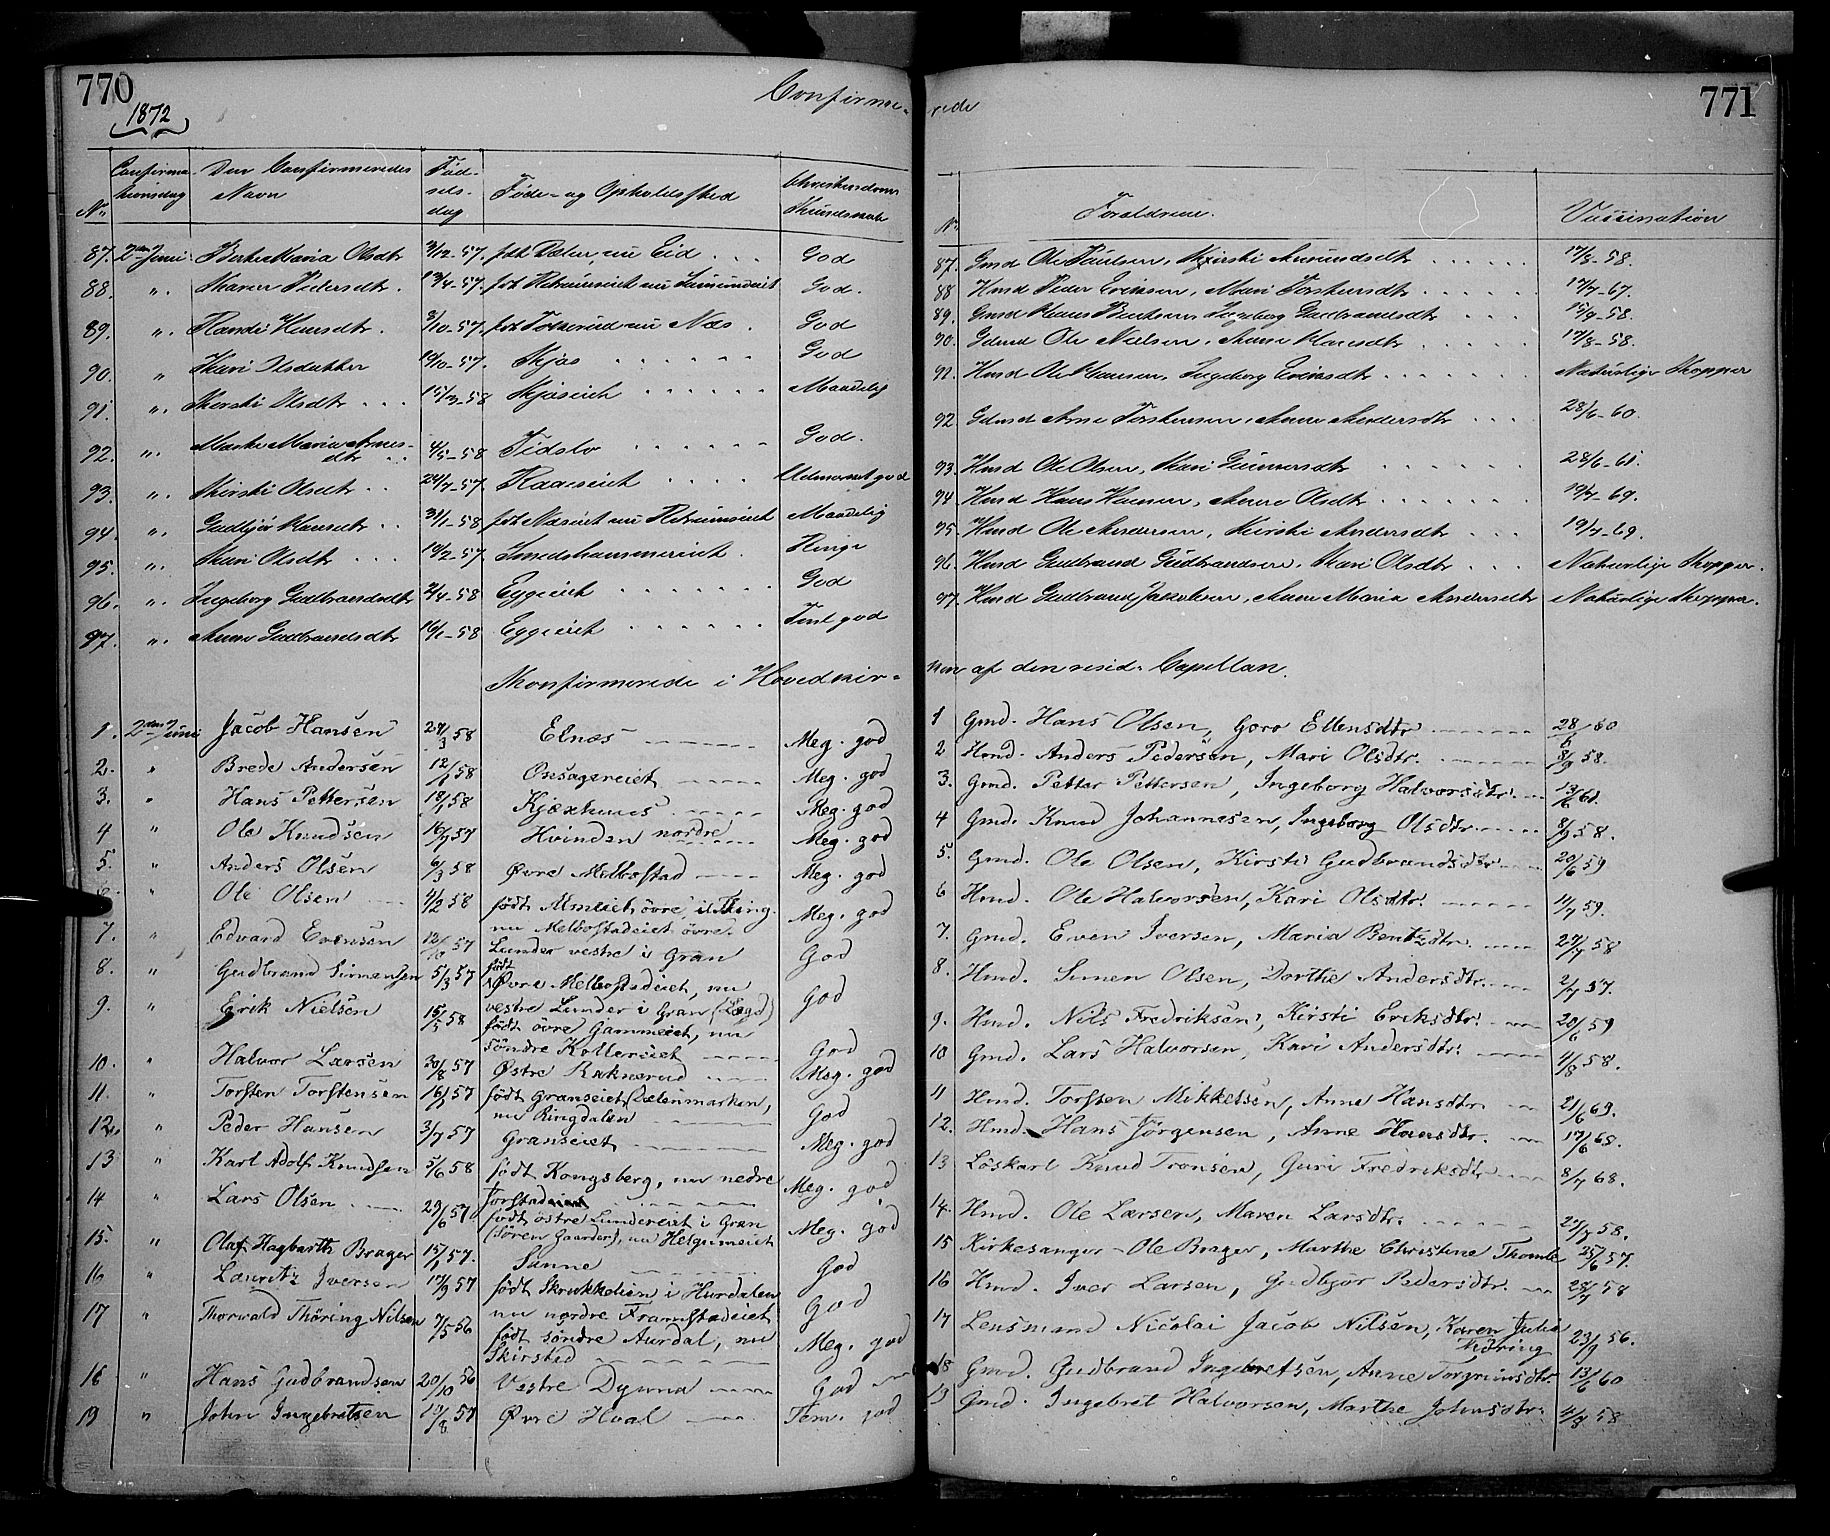 770
1872
Confirme-
Confirma-
tionsdag
Den Confirmeredes
Navn
Fød-
sels-
dag
Føde- og Opholdssted
Christendoms
Kundskab
No
87. 2den Juni Berte Maria Olsdtr 3/12-57. født Dælen, nu Eid . . . God
88. " Maren Pedersdtr . 13/4-57. født God.
89. " Randi Hansdtr. 3/10-57. født nu Næs . God
90. " Kari Olsdatter 10/10-57. Skjøs . . . . . . God
91. " Kersti Olsdtr . . . 15/3-58 Skjøseiet . . . . . Maadelig
92. " Marthe Maria Arnes-
dtr . . 4/5-58 Tidslo . . . . . . God.
93. " Kirsti Olsdtr . . 24/7-57. . . . . Udmærket god
94. " Gudbjør Hansdtr . . 31/1-58 født Næseiet nu Maadelig
95. " Kari Olsdtr . . . 19/2-57. Smedshammereiet . Ringe
96. " Ingeborg Gudbrandsdtr 2/4-58 Eggeeiet . . . . . . God
97. " Anne Gudbrandsdtr 16/1-58 Eggeeiet . . . . . . Tml god
Konfirmerede i Hovedkir-
1. 2den Juni Jacob Hansen 29/3 58 Elnæs Meg. god
2. " Brede Andersen 12/1 58 Onsagereiet Meg. god
3. " Hans Pettersen 18/1 58 Kjøxhuus Meg. god
4 " Ole Knudsen 16/7 57 Hvinden nordre Meg. god
5. " Anders Olsen 6/3 58 Øvre Melbostad Meg. god
6. " Ole Olsen 4/2 58 født Almseiet øvre, i Ting.
nu Melbostadeiet øvre. Meg. god
7. " Edvard Evensen 12/8 57 Lunder vestre i Gran God
8. " Gudbrand Simensen 5/3 57 født
Øvre Melbostadeiet, nu
vestre Lunder i Gran (Lægd) God
9. " Erik Nielsen 15/5 58 født øvre Gammeiet, nu
søndre Kollereiet God
10. " Halvor Larsen 20/8 57 Østre Raknerud Meg. god
11. " Torsten Torstensen 16/1 57 født Granseiet (Dælenmarken,
nu Ringdalen God
12. " Peder Hansen 3/7 57 Granseiet Meg. god
13 " Karl Adolf Knudsen 5/6 58 født Kongsberg, nu nedre
Torstad Meg. god
14 " Lars Olsen 29/6 57 født østre Lundereiet i Gran
(Søren Gaarder), nu Helgumeiet Meg. god
15. " Olaf Hagbarth Brager 15/1 57. Sanne God
16 " Lauritz Iversen 17/9 57 født Skrukkelien i Hurdalen
nu nordre Framstadeiet God
17 " Thorvald Thøring Nilsen 7/5 56 født søndre Aurdal, nu
Skirstad Meg. god
18 " Hans Gudbrandsen 20/10 56 Vestre Dynna God
19 " John Ingebretsen 19/8 57 Øvre Hval Tem. god
771
rede
No
Forældrene.
Vaccination
87. Gmd Ole Paulsen, Kjersti Amundsdtr . . . . . . 17/8-58.
88 Hmd Peder Eriksen, Mari Torstensdtr . . . . . . 17/7-67.
89. Gmd Hans Bentsen, Ingeborg Gudbrandsdtr . . . 15/9-58.
90. Gdmd Ole Nielsen, Anne Hansdtr . . . . . 17/8-58.
91. Hmd Ole Hansen, Ingeborg Eriksdtr . . . . . . . Naturlige Kopper
92. Gdmd Arne Torstensen, Anne Andersdtr . . . 28/6-60.
93. Hmd Ole Olsen, Kari Gunnersdtr . . . . . . 28/6-61.
94 Hmd Hans Hansen, Anne Olsdtr . . . . . . 19/7-69.
95. Hmd Ole Andersen, Kirsti Andersdtr . . . 19/7-69.
96. Hmd Gudbrand Gudbrandsen, Kari Olsdtr . . . Naturlige Kopper.
97. Hmd Gudbrand Jakobsen, Anne Maria Andersdtr Naturlige Kopper.
ken af den resid. Capellan.
1 Gmd. Hans Olsen, Goro Ellensdtr 28/6 60
2. Hmd. Anders Pedersen, Mari Olsdtr. 8/9 58.
3. Gmd. Petter Pettersen, Ingeborg Halvorsdtr 13/6 61.
4 Gmd. Knud Johannesen, Ingeborg Olsdtr. 8/9 58.
5. Gmd. Ole Olsen, Kirsti Gudbrandsdtr 20/6 59
6 Hmd. Ole Halvorsen, Kari Olsdtr. 11/7 59.
7. Gmd. Even Iversen, Maria Bentzdtr. 27/7 58
8. Hmd. Simen Olsen, Dorthe Andersdtr. 2/7 57.
9. Hmd. Nils Fredriksen, Kirsti Eriksdtr. 20/6 59
10 Gmd. Lars Halvorsen, Kari Andersdtr. 4/8 58.
11 Hmd. Torsten Mikkelsen, Anne Hansdtr. 21/6 69.
12. Hmd. Hans Jørgensen, Anne Hansdtr. 17/6 68.
13 Løskarl Knud Tronsen, Guri Fredriksdtr. 8/7 68.
14. Hmd. Ole Larsen, Maren Larsdtr. 27/7 58.
15 Kirkesanger Ole Brager, Marthe Christine Thomle 25/6 57.
16 Hmd. Iver Larsen, Gudbjør Pedersdtr. 28/7 58
17 Lensmand Nicolai Jacob Nilsen, Karen Julie
Thøring 23/9 56.
18 Gmd. Gudbrand Ingebretsen, Anne Torgrimsdtr. 13/6 60
19 Gmd. Ingebret Halvorsen, Marthe Johnsdtr. 4/8 58